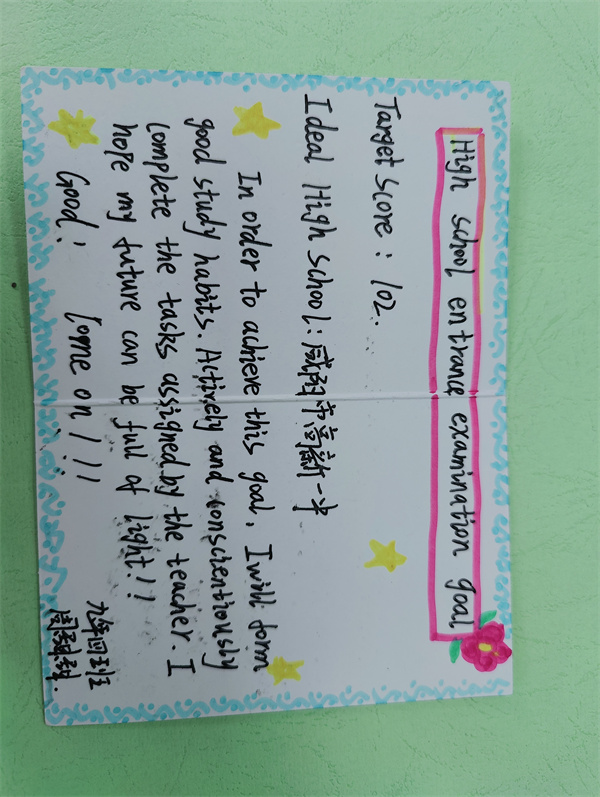 High school entrance examination goal
Target score : 102.
Ideal High school : 咸阳市高新一中
In order to achieve this goal, I will form
good study habits. Actively and conscientiously
complete the tasks assigned by the teacher. I
hope my future can be full of light!!
Good! Come on!!!
九年四班
周